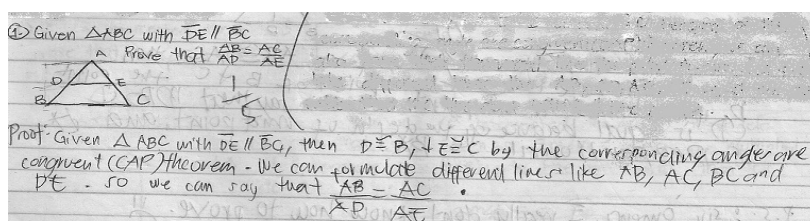 ① Given △ABC with DE // BC
Prove that AB/AD = AC/AE
A
D E
B C
1/5
Proof: Given △ ABC with DE // BC, then D ≅ B, + E ≅ C by the corresponding angles are
congruent (CAP) theorem. We can formulate different lines like AB, AC, BC and
DE. so we can say that AB/AD = AC/AE.